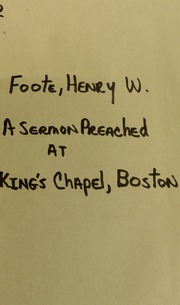 Foote, Henry W.
A Sermon Preached
AT
King's Chapel, Boston